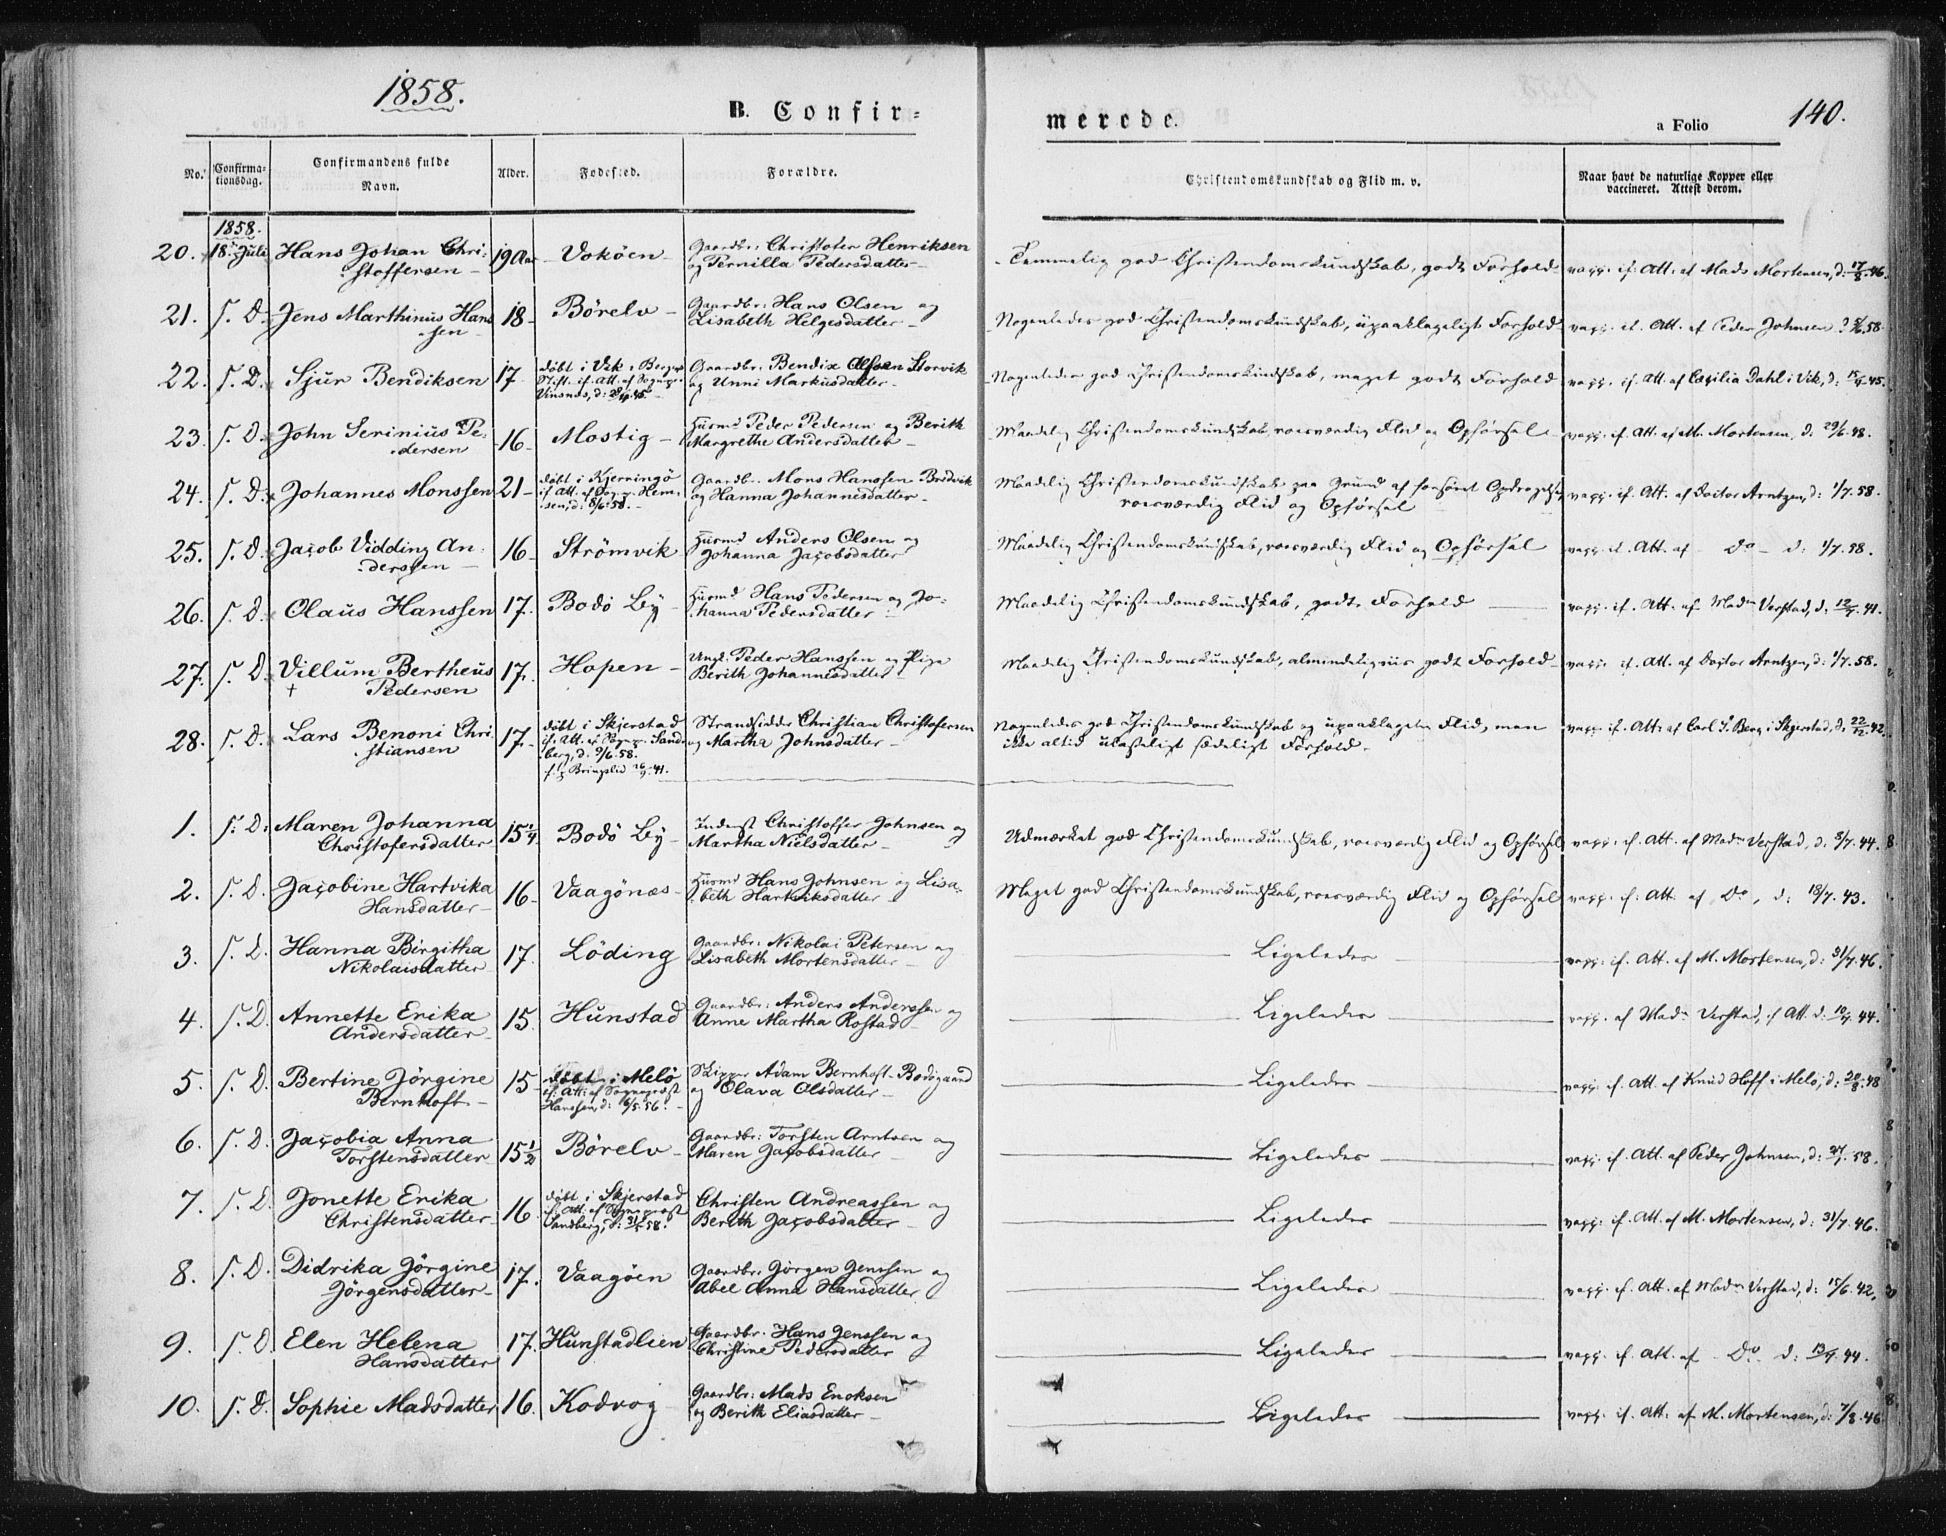 1858.
B. Confir=
merede.
a Folio
140.
No.
Confirma-
tionsdag.
Confirmandens fulde
Navn.
Alder.
Fødested.
Forældre.
Christendomskundskab og Flid m. v.
Naar havt de naturlige Kopper eller
vaccineret. Attest derom.
1858.
20. 18. Juli Hans Johan Chri- 19 Aar Vokøen Gaardbr: Christofer Henriksen Temmelig god Christendomskundskab, godt Forhold vacc. if. Att. af Mads Mortensen, d: 17/8.46.
stoffersen og Pernilla Pedersdatter
21. S. D. Jens Marthinus Hans 18 Børelv Gaardbr: Hans Olsen og Nogenledes god Christendomskundskab, upaaklageligt Forhold vacc. if. Att. af Peder Johnsen
sen Lisabeth Helgesdatter
22. S. D. Sjur Bendiksen 17 døbt i Vik i Bergens Gaardbr: Bendix Olsen Storvik Nogenledes god Christendomskundskab, meget godt Forhold vacc. if. Att. af Cecilia Dahl i Vik, d: 15/9.45.
Stift. if. Att. af Sognepr. og Unni Markusdatter
23. S. D. John Serinius Pe- 16 Mostig Husmd Peder Pedersen og Berith Maadelig Christendomskundskab, roesværdig Flid og Opførsel vacc. if. Att. af M. Mortensen, d. 29/6.48.
dersen Margrethe Andersdatter
24. S. D. Johannes Monssen 21 døbt i Kjerringø Gaardbr. Mons Hanssen Bredvik Maadelig Christendomskundskab paa Grund af forsømt Opdragelse, vacc. if. Att. af Doctor Arntzen, d: 1/7.58.
if Att. af Sogn. Hem- og Hanna Johannesdatter roesværdig Flid og Opførsel
sen, d: 6/6.58.
25. S. D. Jacob Vidding An- 16 Strömvik Husmd Anders Olsen og Maadelig Christendomskundskab, roesværdig Flid og Opførsel vacc. if. Att. af Do d: 1/7.58.
derssen Johanna Jacobsdatter
26. S. D. Olaus Hanssen 17. Bodö By Husmd Hans Pedersen og Jo- Maadelig Christendomskundskab, godt Forhold vacc. if. Att. af Madm Verstad, d: 12/7.41.
hanna Pedersdatter
27. S. D. Villum Bertheus 17. Hopen Ungk. Peder Hanssen og Pige Maadelig Christendomskundskab, almindeligviis godt Forhold vacc. if. Att. af Doctor Arntzen, d: 1/7.58.
+ Pedersen Berith Johannesdatter
28. S. D. Lars Benoni Chri 17. døbt i Skjerstad Strandsidder Christian Christofersen Nogenledes god Christendomskundskab og upaaklagelig Flid, men vacc. if. Att: af Carl J. Berg i Skjerstad, d: 22/12.42.
stiansen if. Att. af Sognepr. Sand- og Martha Johnsdatter ikke altid ulasteligt sædeligt Forhold.
berg, d: 9/6.58.
1. S. D. Maren Johanna 15 1/4 Bodö By Inderst Christoffer Johnsen og Udmærket god Christendomskundskab, roesværdig Flid og Opførsel vacc. if. Att. af Madm Verstad, d: 5/7.44.
Christofersdatter Martha Nielsdatter
2. S. D. Jacobine Hartvika 16 Vaagönæs Husmd Hans Johnsen og Lisa- Meget god Christendomskundskab, roesværdig Flid og Opførsel vacc. if. Att. af Do, d: 18/7.43.
Hansdatter beth Hartviksdatter
3. S. D. Hanna Birgitha 17. Löding Gaardbr: Nikolai Petersen og Ligeledes vacc. if. Att. af M. Mortensen, d: 31/7.46.
Nikolaisdatter Lisabeth Mortensdatter
4. S. D. Annette Erika 15. Hunstad Gaardbr: Anders Anderssen og Ligeledes vacc. af Madm Verstad, if Att. d: 10/7.44.
Andersdatter Anne Martha Rostad
5. S. D. Bertine Jörgine 15 døbt i Melö Skipper Adam Bernhoft Bodögaard Ligeledes vacc. if. Att. af Knud Hoff i Melö, d: 20/8.48
Bernhoft if. Att: af Sogneprest og Olava Olsdatter
Hanssen, d: 6/5.56.
6. S. D. Jacobia Anna 15 1/2 Börelv Gaardbr: Torsten Arntsen og Ligeledes vacc. if. Att. af Peder Johnsen, d:
Torstensdatter Maren Jacobsdatter
7. S. D. Jonette Erika 16 døbt i Skjerstad Christen Andreassen og Ligeledes vacc. if. Att. af M. Mortensen, d: 31/7.46.
Christensdatter if. Att. af Sogneprest Berith Jacobsdatter
Sandberg, d:
8. S. D. Didrika Jörgine 17. Vaagöen Gaardbr. Jörgen Jenssen og Ligeledes vacc. if. Att. af Madm Verstad, d: 15/6.42.
Jörgensdatter Abel Anna Hansdatter
9. S. D. Elen Helena 17. Hunstadlien Gaardbr. Hans Jenssen og Ligeledes vacc. if. Att. af Do d: 13/9.44.
Hansdatter Christine Pedersdatter
10. S. D. Sophie Madsdatter 16. Kodvog Gaardbr: Mads Enoksen Ligeledes vacc. if. Att: af M. Mortensen, d: 7/8.46
og Berith Eliasdatter